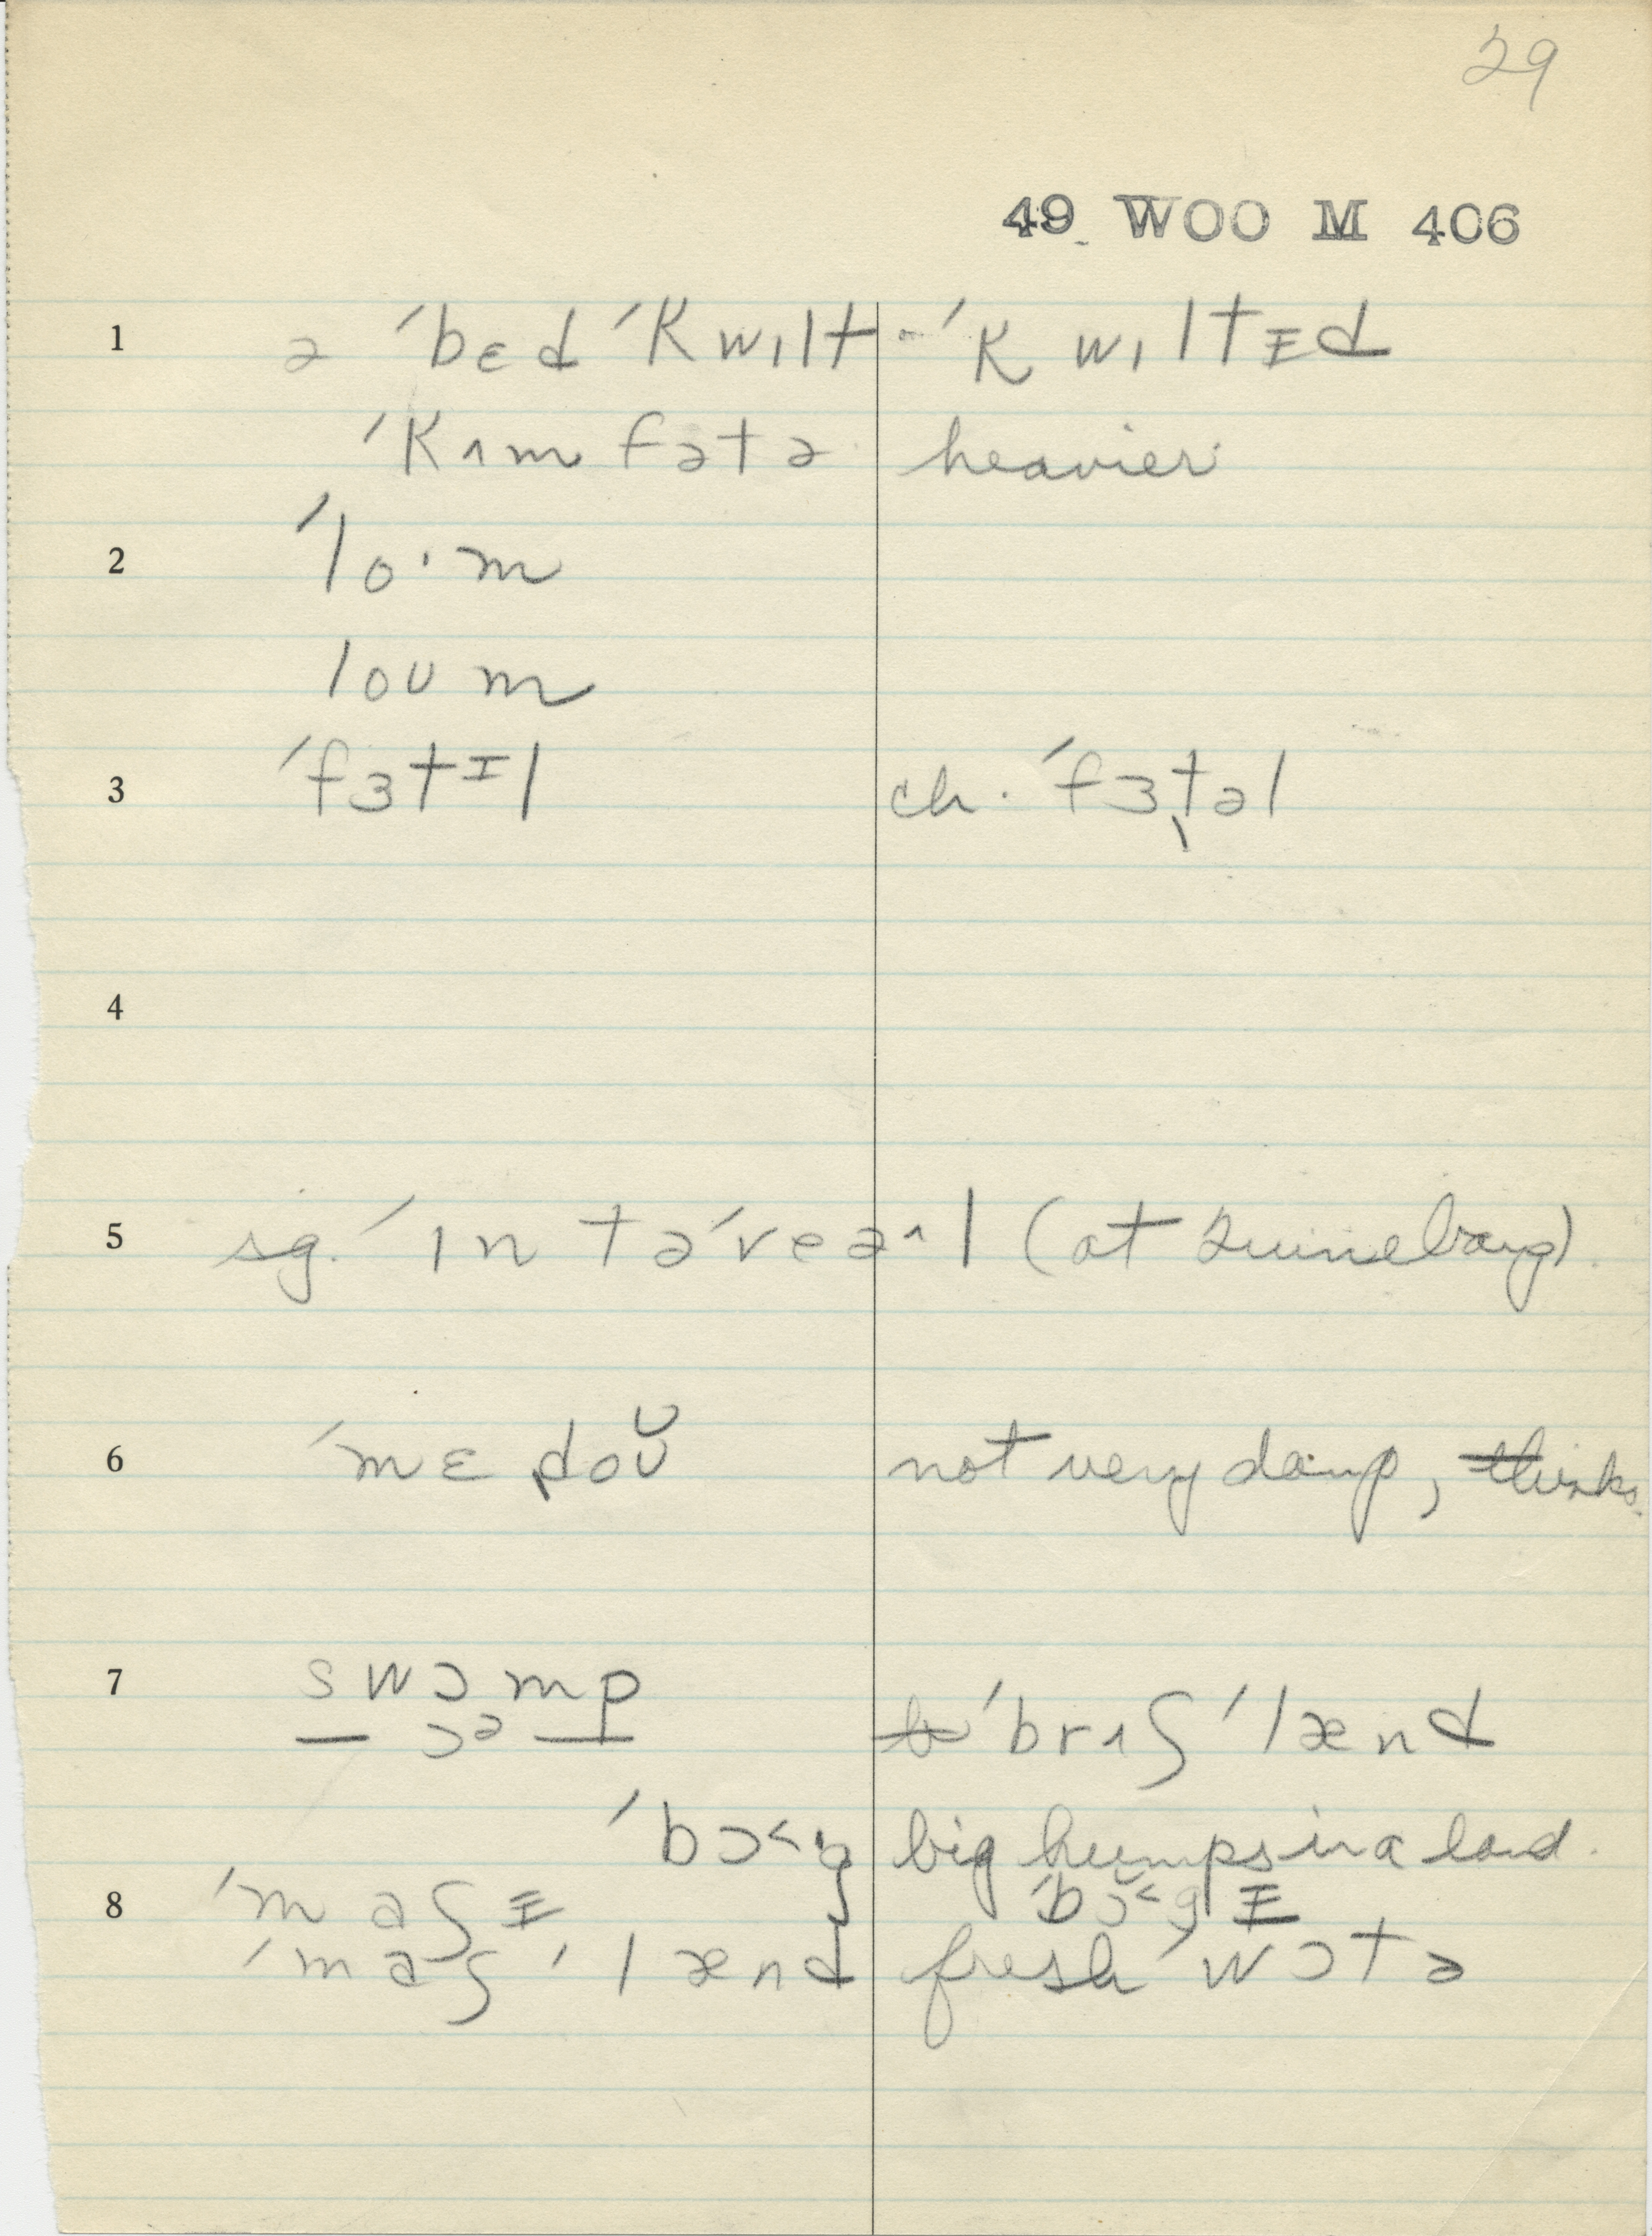 29
49 WOO M 406
1 ə ˈbɛd ˈkwɪlt - ˈkwɪltɪ̵d
ˈkʌmfətə heavier
2 ˈlo·m
loʊm
3 ˈfɜtɪ̵l ch. ˈfɜt̬əl
4
5 sg. ˈɪn təˈveəʌl (at Quinebaug)
6 ˈmɛdoʊ̆ not very damp, thinks
7 swɔmp
— ɔᵊ — ˈbrʌʃ ˈlænd
ˈbɔ˂g big humps in a land.
8 ˈmaʃɪ̵ ˈbɔ˂gɪ̵
ˈmaʃ ˈlænd fresh ˈwɔtə